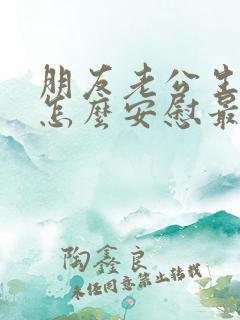 朋友老公生
怎麼安慰最
陶鑫良
未经同意禁止转载